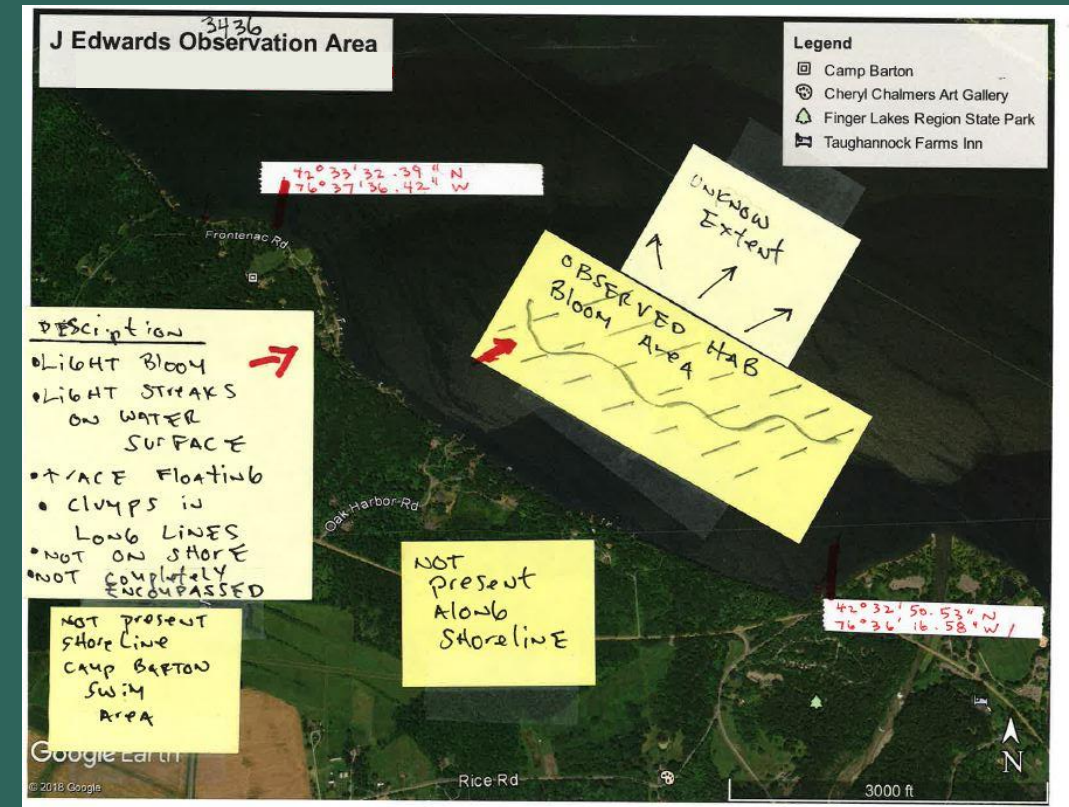 3436
J Edwards Observation Area
Legend
Camp Barton
Cheryl Chalmers Art Gallery
Finger Lakes Region State Park
Taughannock Farms Inn
42° 33' 32.39" N
76° 37' 36.42" W
Frontenac Rd
UNKNOW
Extent
OBSERVED HAB
Bloom Area
DESCiption
• LiGHT Bloom
• LiGHT STreAKS
ON WATER
SUrFACE
• trACE FloAtinG
• Clumps in
LonG LiNES
• NOT ON SHorE
• NOT completely
ENCOMPASSED
Oak Harbor Rd
NOT
present
AlonG
SHoreliNE
NOT present
SHore Line
CAMP BARTON
Swim
AreA
42° 32' 50.53" N
76° 36' 16.58" W
Google Earth
© 2018 Google
Rice Rd
3000 ft
N